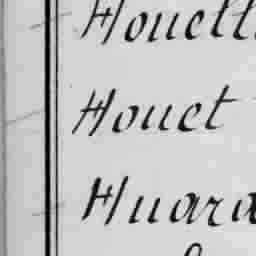 Houett
Houet
Huara